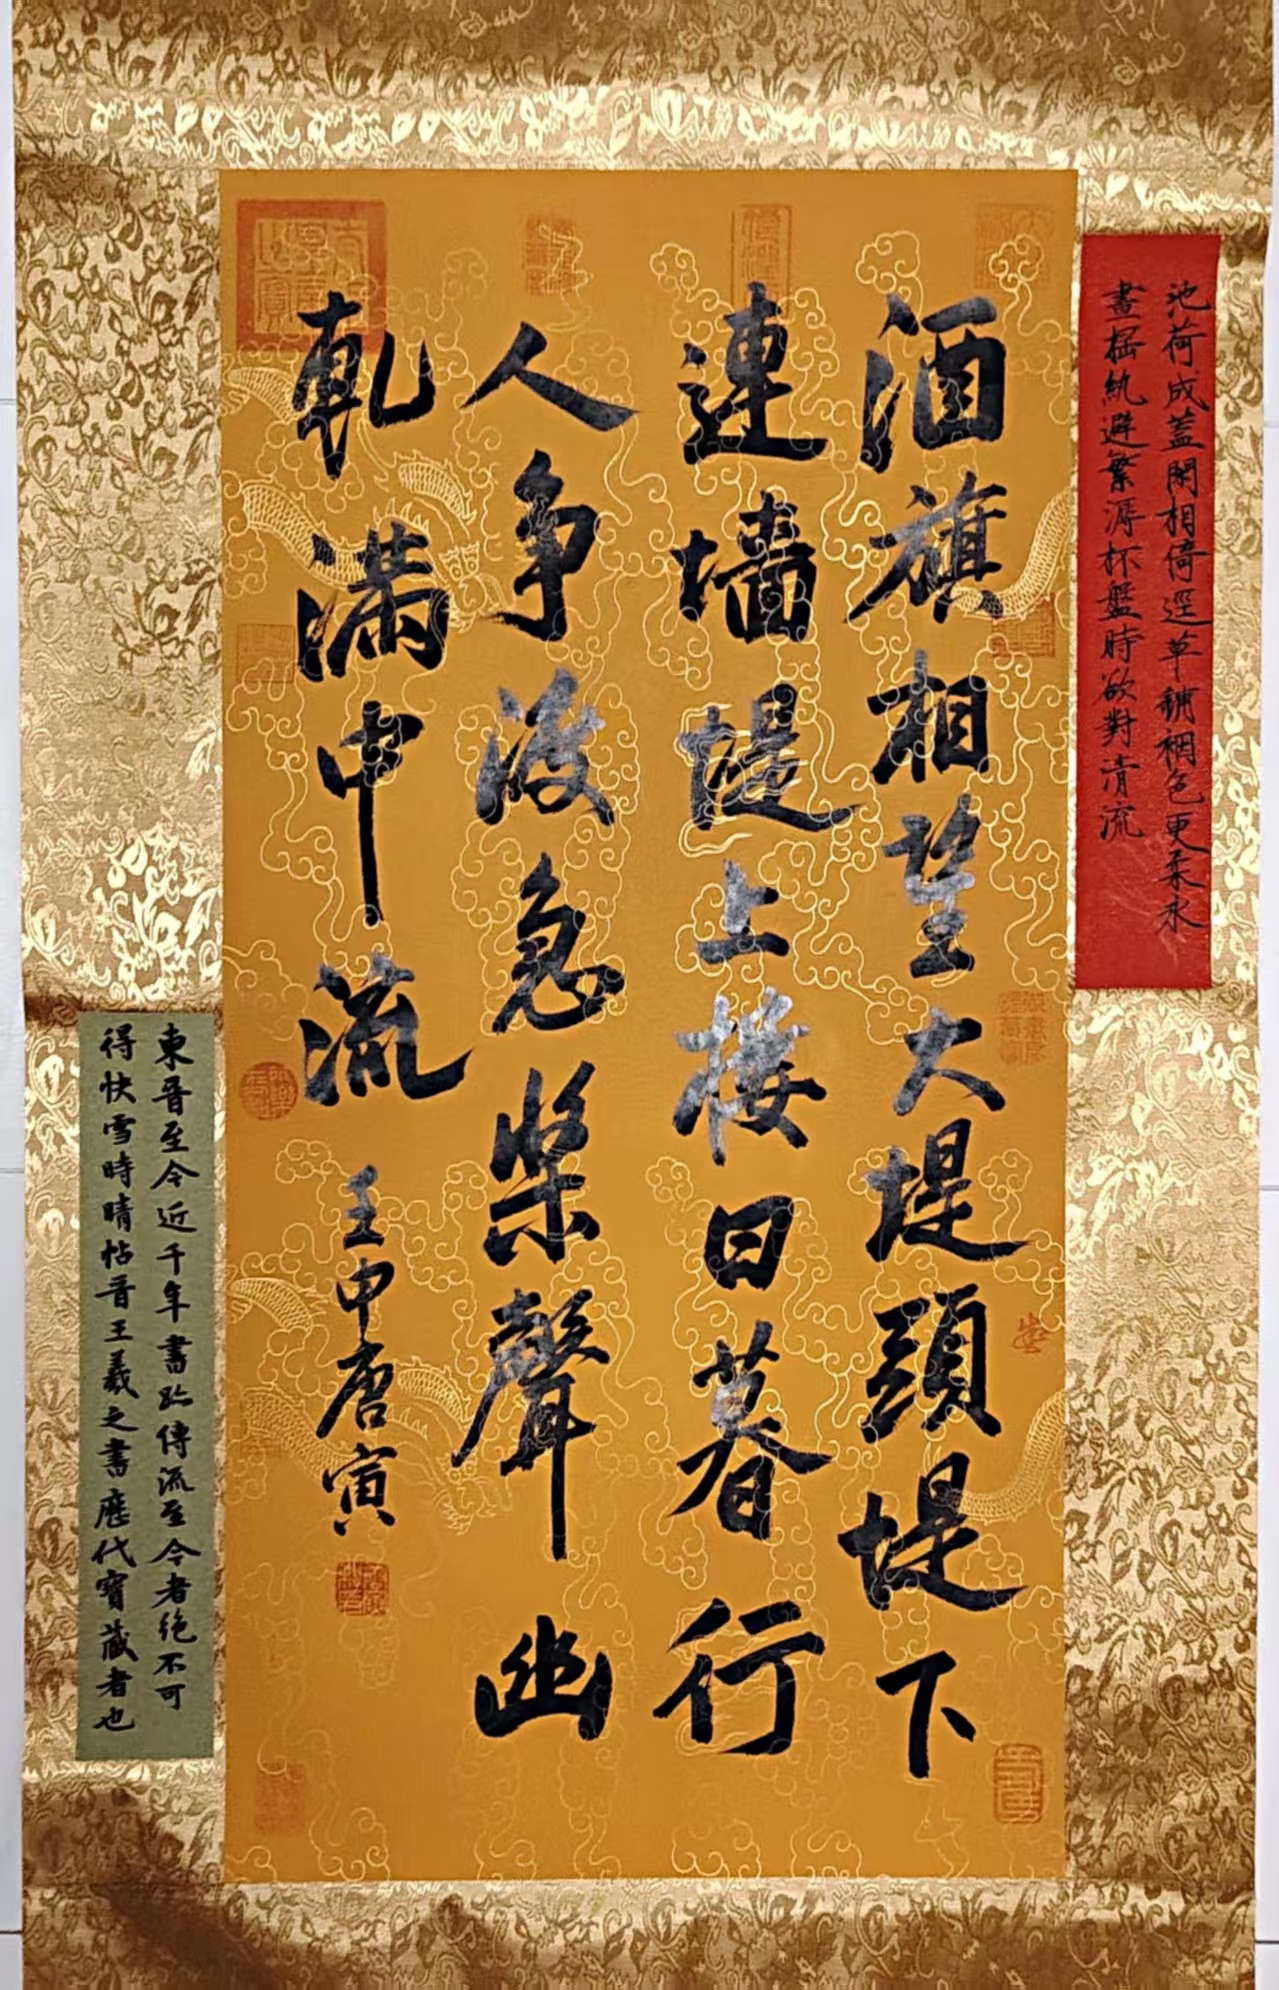 池荷成蓋閑相倚逕草鋪裀色更柔永
晝搖紈避繁溽杯盤時欲對清流
酒旗相望大堤頭堤下
連墻堤上樓日暮行
人争渡急槳聲幽
軋滿中流
壬申唐寅
東晉至今近千年書跡傳流至今者絶不可
得快雪時晴帖晉王羲之書應代寶藏者也